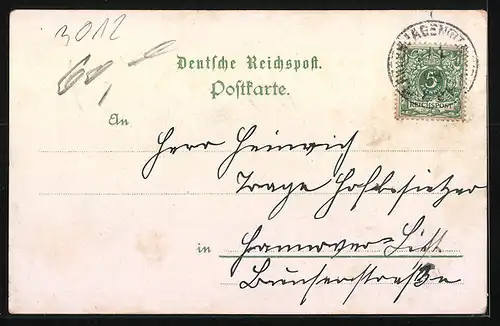 3012
60,-
Deutsche Reichspost.
Postkarte.
HAGEN
5
REICHSPOST
An
Herrn Heinrich
Trage Hofbesitzer
in Hannover-List
Bunserstraße